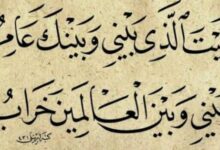 يت الَّذِي بَيْنِي وَبَيْنَكَ عَامِ
بَيْنِي وَبَيْنَ الْعَالَمِينَ خَرَابُ